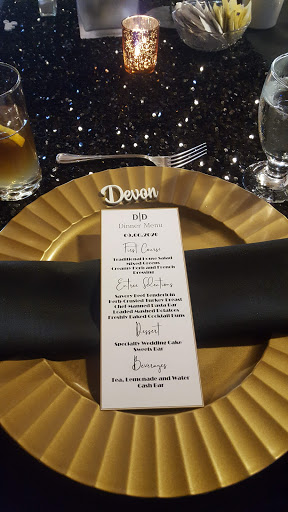 Devon
D|D
Dinner Menu
First Course
Traditional House Salad
Mixed Greens
Creamy and French
Dressing
Entree Selections
Savory Beef Tenderloin
Herb Crusted Turkey Breast
Chef Manned Pasta Bar
Loaded Mashed Potatoes
Freshly Baked Cocktail Buns
Dessert
Specialty Wedding Cake
Sweets Bar
Beverages
Tea, Lemonade and Water
Cash Bar